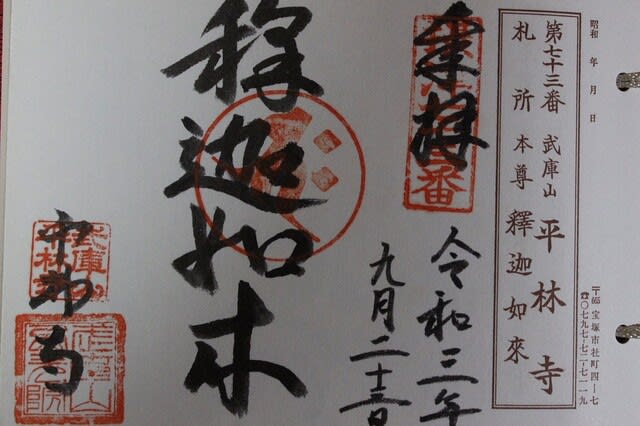 昭和 年 月 日
〒665 宝塚市社町四ー七
☎〇七九七-七二-七一一九
第七十三番 武庫山 平林寺
札所 本尊 釋迦如來
奉拝
令和三年
九月二十三日
釋迦如来
平林寺